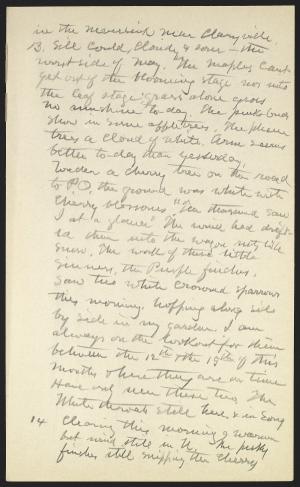 in the                near Claryville.
13. Still Cold, Cloudy & sour – the
worst side of May. The maples can't
get out of the blooming stage nor into
the leaf stage; grass alone grows
no sunshine to-day. The pink buds
show in some apple trees. The plum
trees a cloud of white. Arm seems
better to-day than yesterday.
Under a cherry tree on the road
to P.O. the ground was white with
Cherry blossoms "Ten thousand saw
I at a glance" The wind had drift-
ed them into the wagon ruts like
snow. The work of those little
sinners, the Purple finches.
Saw two white crowned sparrows
this morning, hopping along side
by side in my garden. I am
always on the lookout for them
between the 12th & the 19th of this
month & here they are on time
Have only seen these two. The
White throats still here, & in song
14 Clearing this morning & warmer
but wind still in N. The pesky
finches still snipping the Cherry